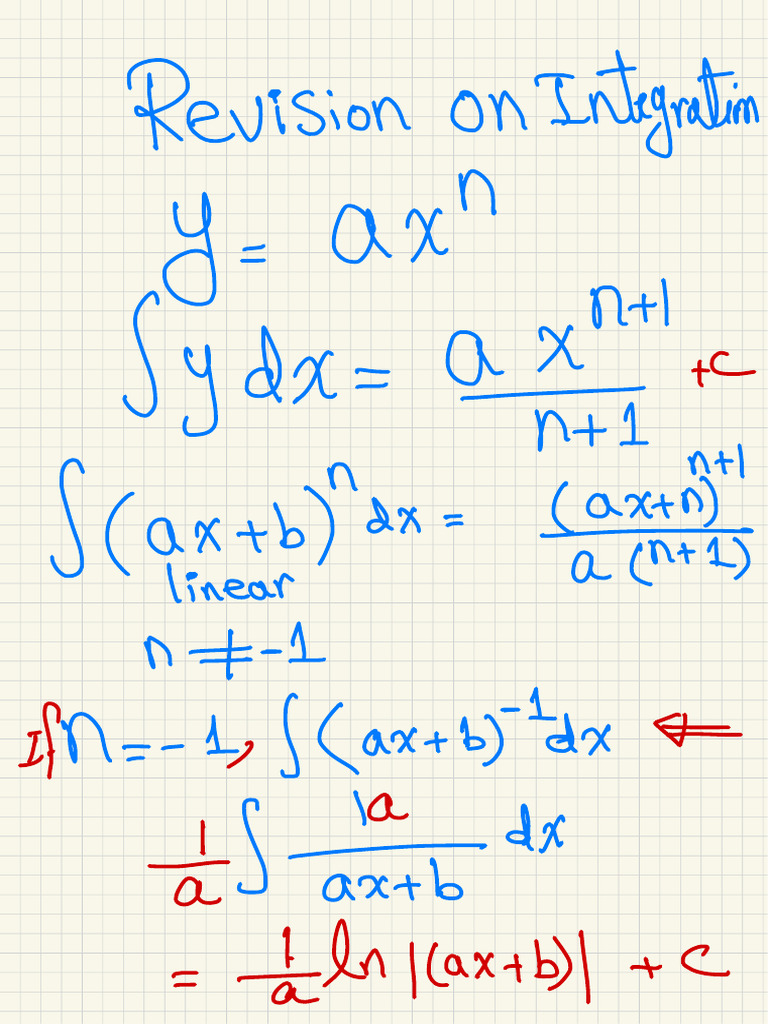 Revision on Integration
y = ax^n
∫ y dx = a x^(n+1) / (n+1) + c
∫ (ax+b)^n dx = (ax+n)^(n+1) / a(n+1)
linear
n ≠ -1
If n = -1, ∫ (ax+b)^-1 dx ⇐
1/a ∫ 1a/(ax+b) dx
= 1/a ln |(ax+b)| + c